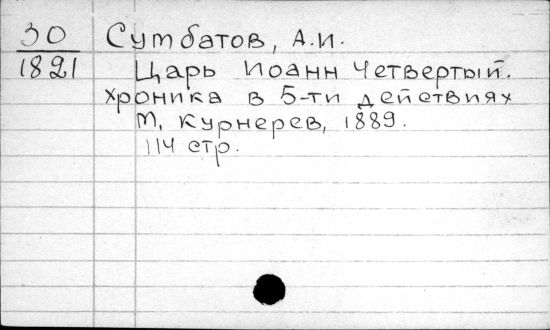 30 Сумбатов, А.И.
1821 Царь Иоанн Четвертый.
хроника в 5-ти действиях
М, Курнерев, 1889.
114 стр.